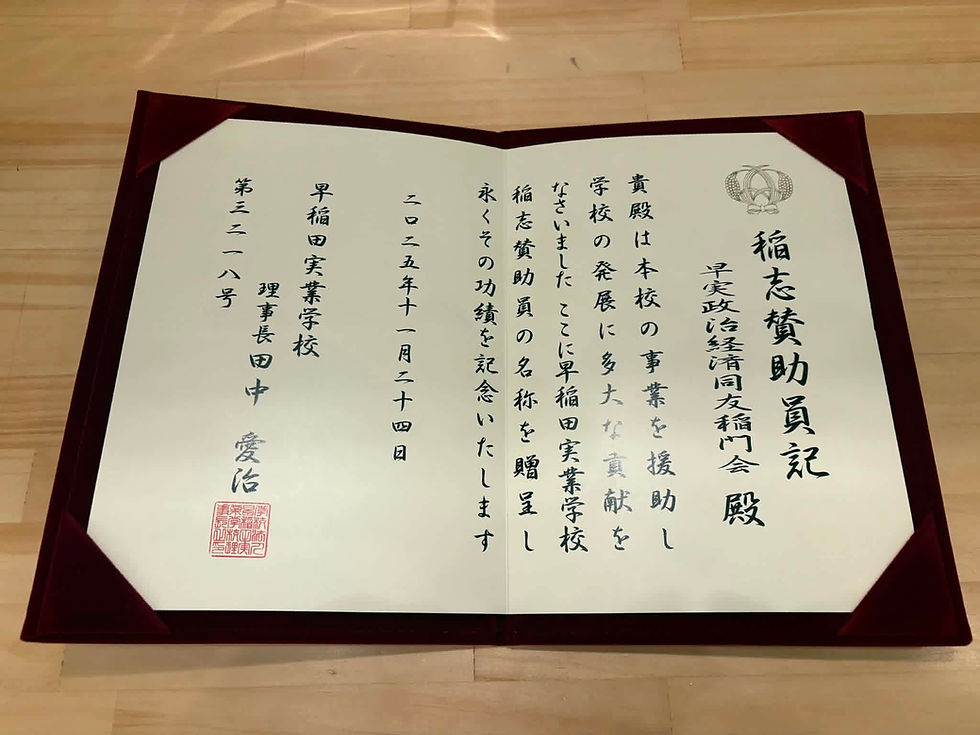 稲志賛助員記
早実政治経済同友稲門会 殿
貴殿は本校の事業を援助し
学校の発展に多大な貢献を
なさいました ここに早稲田実業学校
稲志賛助員の名称を贈呈し
永くその功績を記念いたします
二〇二五年十一月二十四日
早稲田実業学校
理事長 田中 愛治
第三二一八号